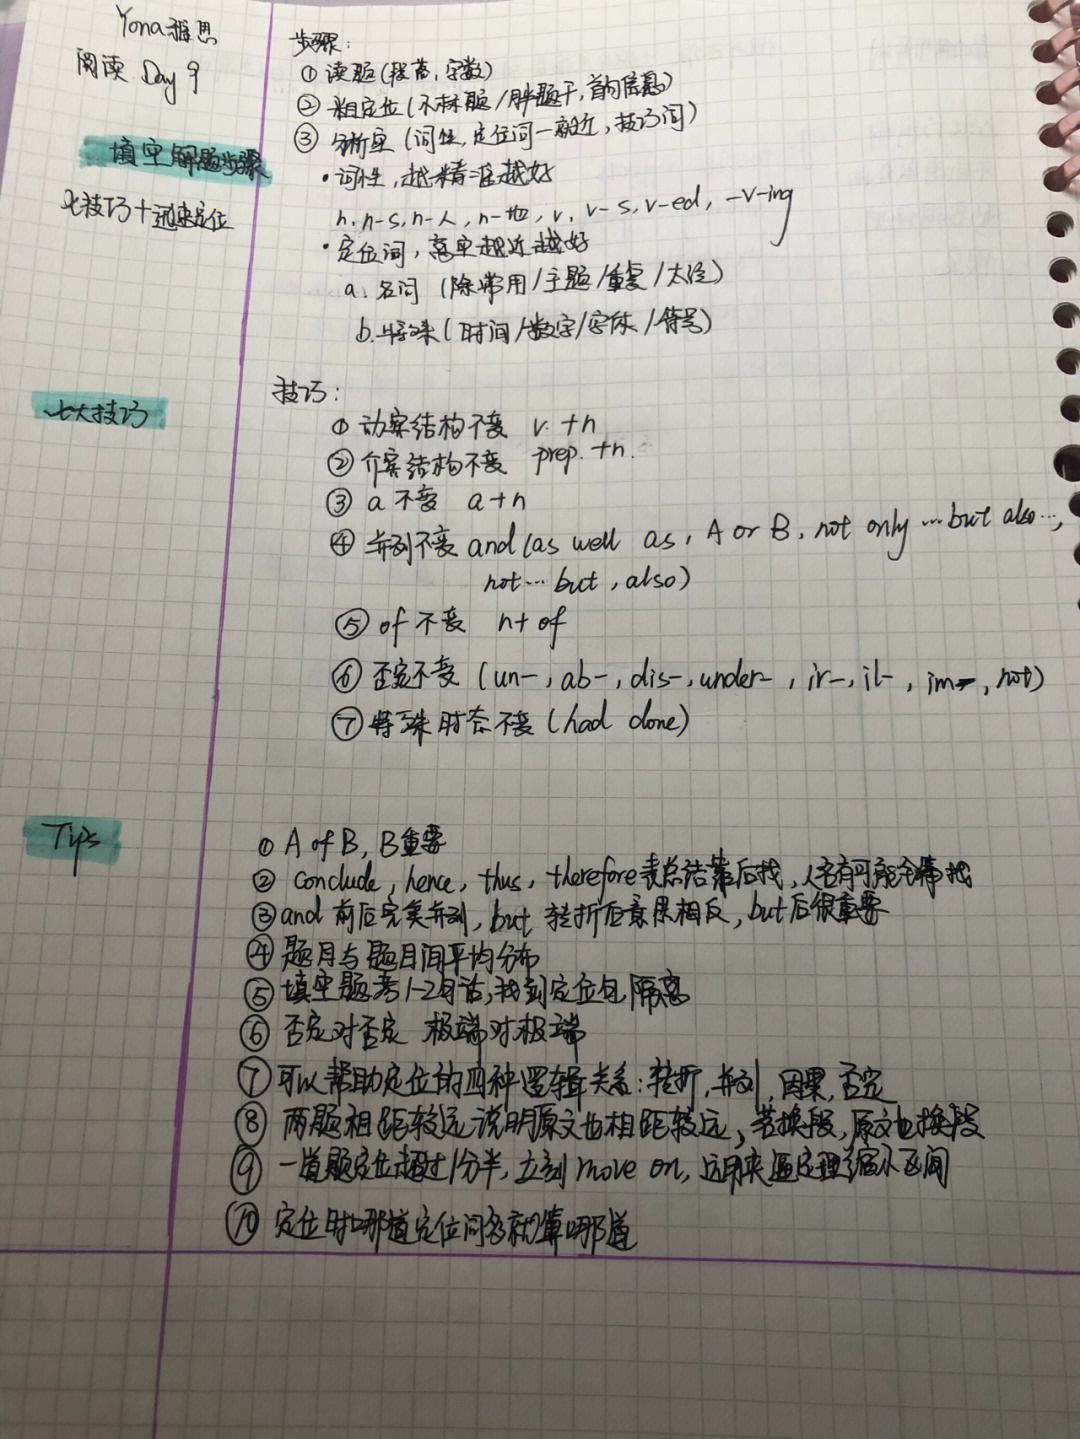 Yona雅思
阅读 Day 9
步骤:
① 读题(段落,字数)
② 粗定位(小标题/胖题干,首句信息)
③ 分析空(词性,定位词一就近,技巧词)
填空解题步骤
七技巧+迅速定位
·词性,越精准越好
n, n-s, n-人, n-地, v, v-s, v-ed, -v-ing
·定位词,离空越近越好
a. 名词 (除常用/主题/重复/太泛)
b. 特殊(时间/数字/字体/符号)
七大技巧
技巧:
① 动宾结构不变 v. +n
② 介宾结构不变 prep. +n.
③ a不变 a+n
④ 并列不变 and (as well as, A or B, not only …but also…,
not… but, also)
⑤ of不变 n+ of
⑥ 否定不变 (un-, ab-, dis-, under-, ir-, il-, im-, not)
⑦ 特殊时态不变 (had done)
Tips
① A of B, B重要
② conclude, hence, thus, therefore表总结靠后找,人名有可能全篇找
③ and前后完美并列, but 转折后意思相反, but后很重要
④ 题目与题目间平均分布
⑤ 填空题考1-2句话,找到定位句,隔离
⑥ 否定对否定 极端对极端
⑦ 可以帮助定位的四种逻辑关系:转折,并列,因果,否定
⑧ 两题相距较远说明原文也相距较远,若换段,原文也换段
⑨ 一道题定位超过1分半,立刻move on, 运用夹逼定理缩小区间
⑩ 定位时哪道定位词多就算哪道